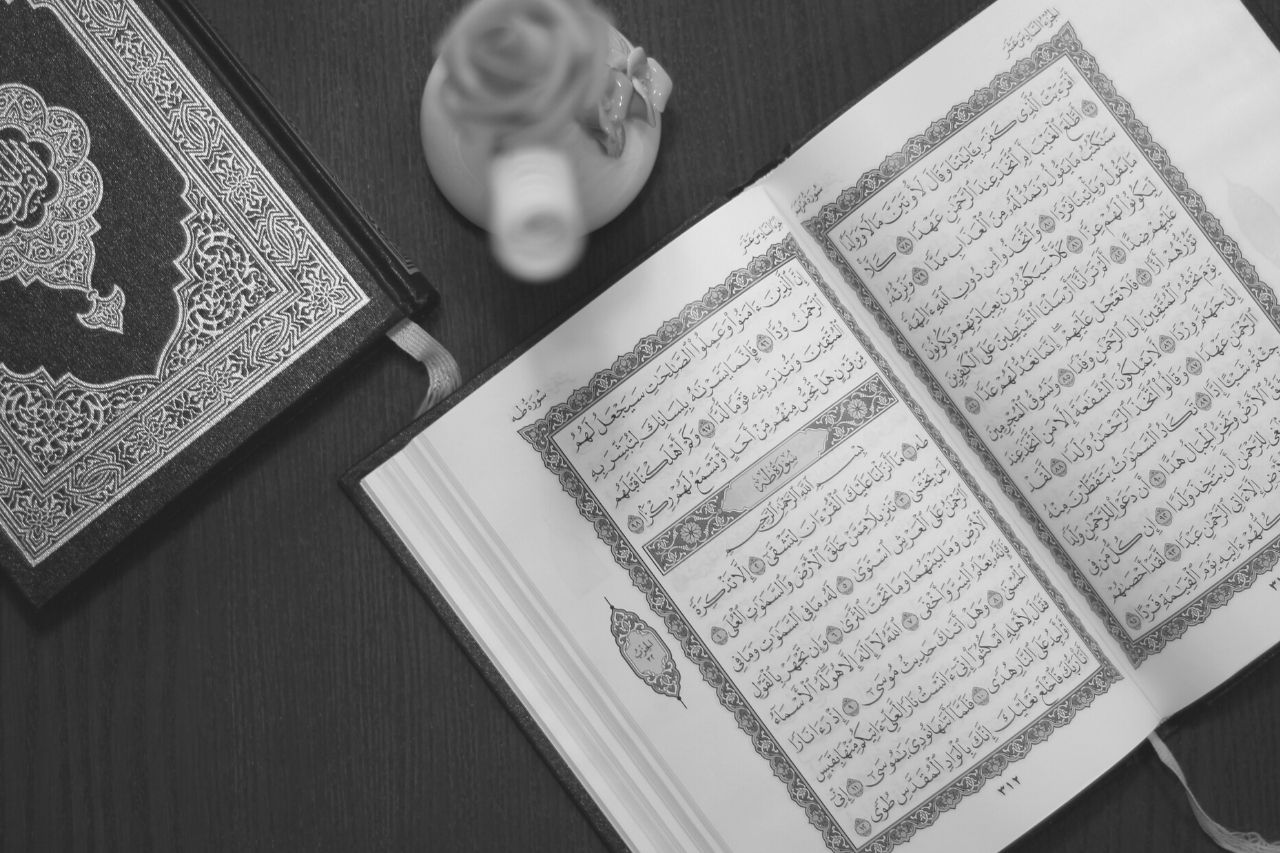 الجزء السادس عشر
سورة مريم
أَفَرَءَيْتَ ٱلَّذِى كَفَرَ بِـَٔايَـٰتِنَا وَقَالَ لَأُوتَيَنَّ مَالًا وَوَلَدًا
٧٧ أَطَّلَعَ ٱلْغَيْبَ أَمِ ٱتَّخَذَ عِندَ ٱلرَّحْمَـٰنِ عَهْدًا ٧٨ كَلَّا
سَنَكْتُبُ مَا يَقُولُ وَنَمُدُّ لَهُۥ مِنَ ٱلْعَذَابِ مَدًّا ٧٩ وَنَرِثُهُۥ
مَا يَقُولُ وَيَأْتِينَا فَرْدًا ٨٠ وَٱتَّخَذُوا۟ مِن دُونِ ٱللَّهِ ءَالِهَةً
لِّيَكُونُوا۟ لَهُمْ عِزًّا ٨١ كَلَّا سَيَكْفُرُونَ بِعِبَادَتِهِمْ وَيَكُونُونَ
عَلَيْهِمْ ضِدًّا ٨٢ أَلَمْ تَرَ أَنَّآ أَرْسَلْنَا ٱلشَّيَـٰطِينَ عَلَى ٱلْكَـٰفِرِينَ
تَؤُزُّهُمْ أَزًّا ٨٣ فَلَا تَعْجَلْ عَلَيْهِمْ إِنَّمَا نَعُدُّ لَهُمْ عَدًّا ٨٤
يَوْمَ نَحْشُرُ ٱلْمُتَّقِينَ إِلَى ٱلرَّحْمَـٰنِ وَفْدًا ٨٥ وَنَسُوقُ ٱلْمُجْرِمِينَ
إِلَىٰ جَهَنَّمَ وِرْدًا ٨٦ لَّا يَمْلِكُونَ ٱلشَّفَـٰعَةَ إِلَّا مَنِ ٱتَّخَذَ عِندَ
ٱلرَّحْمَـٰنِ عَهْدًا ٨٧ وَقَالُوا۟ ٱتَّخَذَ ٱلرَّحْمَـٰنُ وَلَدًا ٨٨ لَّقَدْ
جِئْتُمْ شَيْـًٔا إِدًّا ٨٩ تَكَادُ ٱلسَّمَـٰوَٰتُ يَتَفَطَّرْنَ مِنْهُ
ٱلْأَرْضُ وَتَخِرُّ ٱلْجِبَالُ هَدًّا ٩٠ أَن دَعَوْا۟ لِلرَّحْمَـٰنِ وَلَدًا
لِلرَّحْمَـٰنِ أَن يَتَّخِذَ وَلَدًا ٩٢ إِن كُلُّ مَن
إِلَّآ ءَاتِى ٱلرَّحْمَـٰنِ عَبْدًا ٩٣ لَّقَدْ أَحْصَىٰهُمْ
وَكُلُّهُمْ ءَاتِيهِ يَوْمَ ٱلْقِيَـٰمَةِ فَرْدًا ٩٥
الجزء السادس عشر
سورة طه
إِنَّ ٱلَّذِينَ ءَامَنُوا۟ وَعَمِلُوا۟ ٱلصَّـٰلِحَـٰتِ سَيَجْعَلُ لَهُمُ
ٱلرَّحْمَـٰنُ وُدًّا ٩٦ فَإِنَّمَا يَسَّرْنَـٰهُ بِلِسَانِكَ لِتُبَشِّرَ بِهِ
ٱلْمُتَّقِينَ وَتُنذِرَ بِهِۦ قَوْمًا لُّدًّا ٩٧ وَكَمْ أَهْلَكْنَا قَبْلَهُم
مِّن قَرْنٍ هَلْ تُحِسُّ مِنْهُم مِّنْ أَحَدٍ أَوْ تَسْمَعُ لَهُمْ رِكْزًۢا ٩٨
سُورَةُ طه
بِسْمِ ٱللَّهِ ٱلرَّحْمَـٰنِ ٱلرَّحِيمِ
طه ١ مَآ أَنزَلْنَا عَلَيْكَ ٱلْقُرْءَانَ لِتَشْقَىٰٓ ٢ إِلَّا تَذْكِرَةً
لِّمَن يَخْشَىٰ ٣ تَنزِيلًا مِّمَّنْ خَلَقَ ٱلْأَرْضَ وَٱلسَّمَـٰوَٰتِ ٱلْعُلَى ٤
ٱلرَّحْمَـٰنُ عَلَى ٱلْعَرْشِ ٱسْتَوَىٰ ٥ لَهُۥ مَا فِى ٱلسَّمَـٰوَٰتِ وَمَا فِى
ٱلْأَرْضِ وَمَا بَيْنَهُمَا وَمَا تَحْتَ ٱلثَّرَىٰ ٦ وَإِن تَجْهَرْ بِٱلْقَوْلِ
فَإِنَّهُۥ يَعْلَمُ ٱلسِّرَّ وَأَخْفَى ٧ ٱللَّهُ لَآ إِلَـٰهَ إِلَّا هُوَ لَهُ ٱلْأَسْمَآءُ
ٱلْحُسْنَىٰ ٨ وَهَلْ أَتَىٰكَ حَدِيثُ مُوسَىٰٓ ٩ إِذْ رَءَا نَارًا
فَقَالَ لِأَهْلِهِ ٱمْكُثُوٓا۟ إِنِّىٓ ءَانَسْتُ نَارًا لَّعَلِّىٓ ءَاتِيكُم مِّنْهَا بِقَبَسٍ
أَوْ أَجِدُ عَلَى ٱلنَّارِ هُدًى ١٠ فَلَمَّآ أَتَىٰهَا نُودِىَ يَـٰمُوسَىٰٓ ١١ إِنِّىٓ
أَنَا۠ رَبُّكَ فَٱخْلَعْ نَعْلَيْكَ إِنَّكَ بِٱلْوَادِ ٱلْمُقَدَّسِ طُوًى ١٢
٣١٢